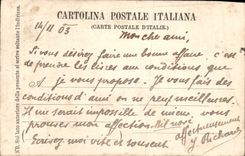 CARTOLINA POSTALE ITALIANA
(CARTE POSTALE D'ITALIE)
14/11 03
Mon cher ami,
Si vous désirez faire une bonne affaire, c'est
de prendre les aux conditions que
je vous propose. Je vous fais des
conditions d'ami on ne peut meilleures.
Il me serait impossible de mieux vous
prouver mon affection.
affectueusement
Ecrivez moi vite et souvent
Richard
NB. Sul lato anteriore della presente si scrive soltanto l'indirizzo.